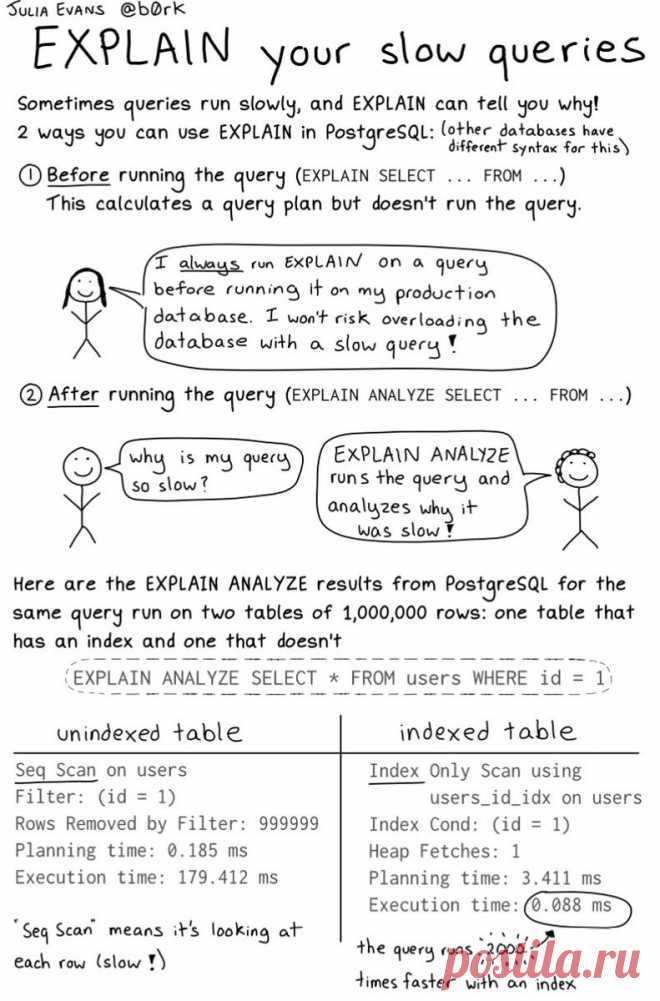 JULIA EVANS @b0rk
EXPLAIN your slow queries
Sometimes queries run slowly, and EXPLAIN can tell you why!
2 ways you can use EXPLAIN in PostgreSQL: (other databases have
different syntax for this)
① Before running the query (EXPLAIN SELECT ... FROM ...)
This calculates a query plan but doesn't run the query.
I always run EXPLAIN on a query
before running it on my production
database. I won't risk overloading the
database with a slow query!
② After running the query (EXPLAIN ANALYZE SELECT ... FROM ...)
why is my query
so slow?
EXPLAIN ANALYZE
runs the query and
analyzes why it
was slow!
Here are the EXPLAIN ANALYZE results from PostgreSQL for the
same query run on two tables of 1,000,000 rows: one table that
has an index and one that doesn't
EXPLAIN ANALYZE SELECT * FROM users WHERE id = 1
unindexed table
Seq Scan on users
Filter: (id = 1)
Rows Removed by Filter: 999999
Planning time: 0.185 ms
Execution time: 179.412 ms
"Seq Scan" means it's looking at
each row (slow!)
indexed table
Index Only Scan using
users_id_idx on users
Index Cond: (id = 1)
Heap Fetches: 1
Planning time: 3.411 ms
Execution time: 0.088 ms
the query runs 2000
times faster with an index
postila.ru